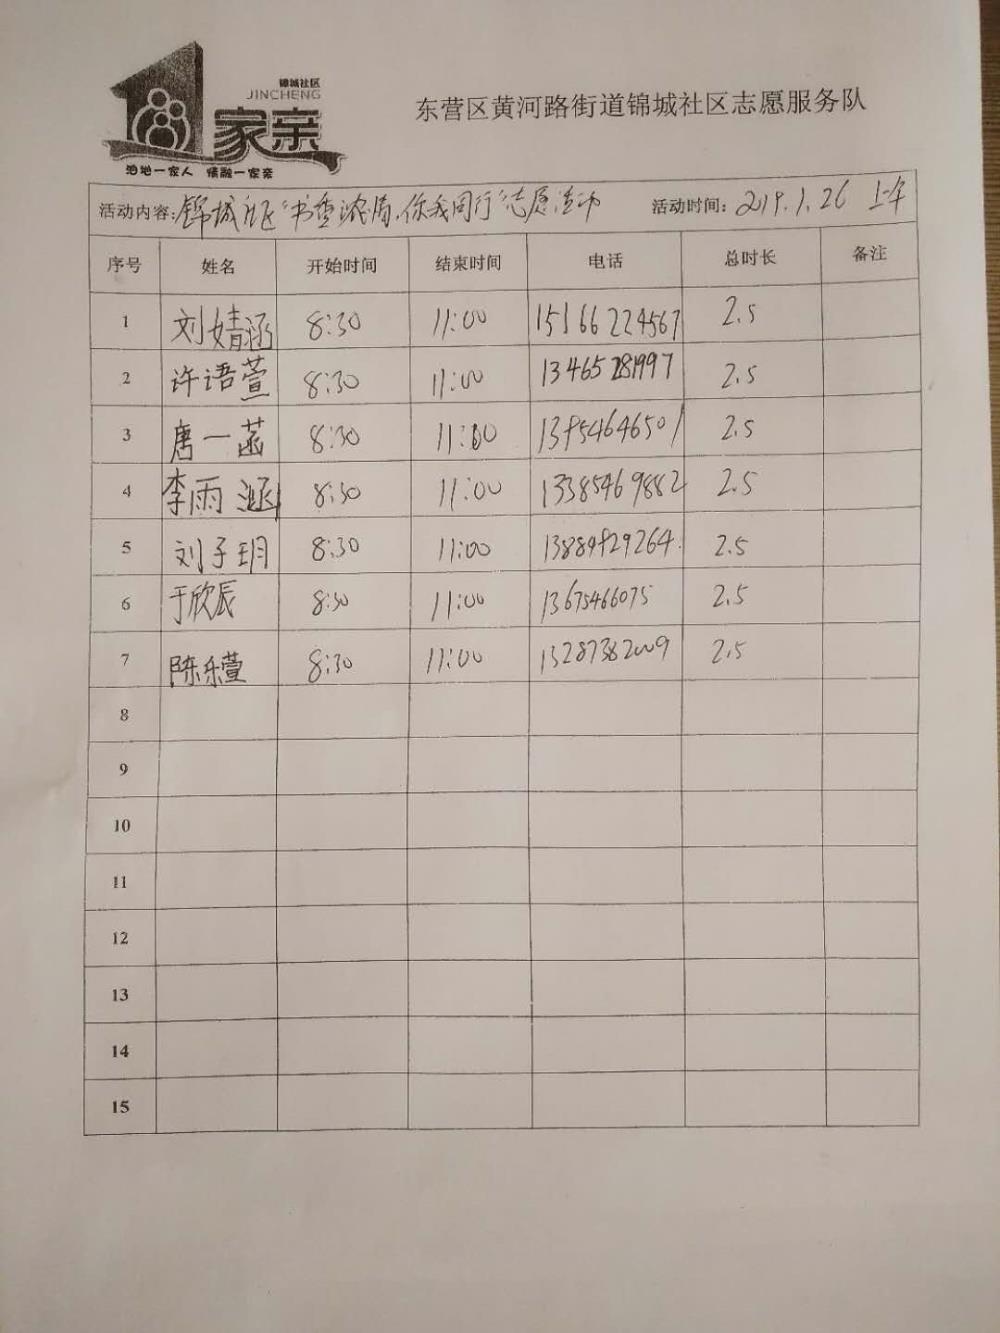 锦城社区
JINCHENG
1家亲
泊地一家人 情融一家亲
东营区黄河路街道锦城社区志愿服务队
活动内容:锦城社区“书香浓情,你我同行”志愿活动 活动时间:2019.1.26 上午
序号 姓名 开始时间 结束时间 电话 总时长 备注
1 刘婧涵 8:30 11:00 15166224567 2.5
2 许语萱 8:30 11:00 13465281997 2.5
3 唐一菡 8:30 11:00 13954646501 2.5
4 李雨涵 8:30 11:00 13385469882 2.5
5 刘子玥 8:30 11:00 2.5
6 于欣辰 8:30 11:00 13675466075 2.5
7 陈乐萱 8:30 11:00 13287382009 2.5
8
9
10
11
12
13
14
15